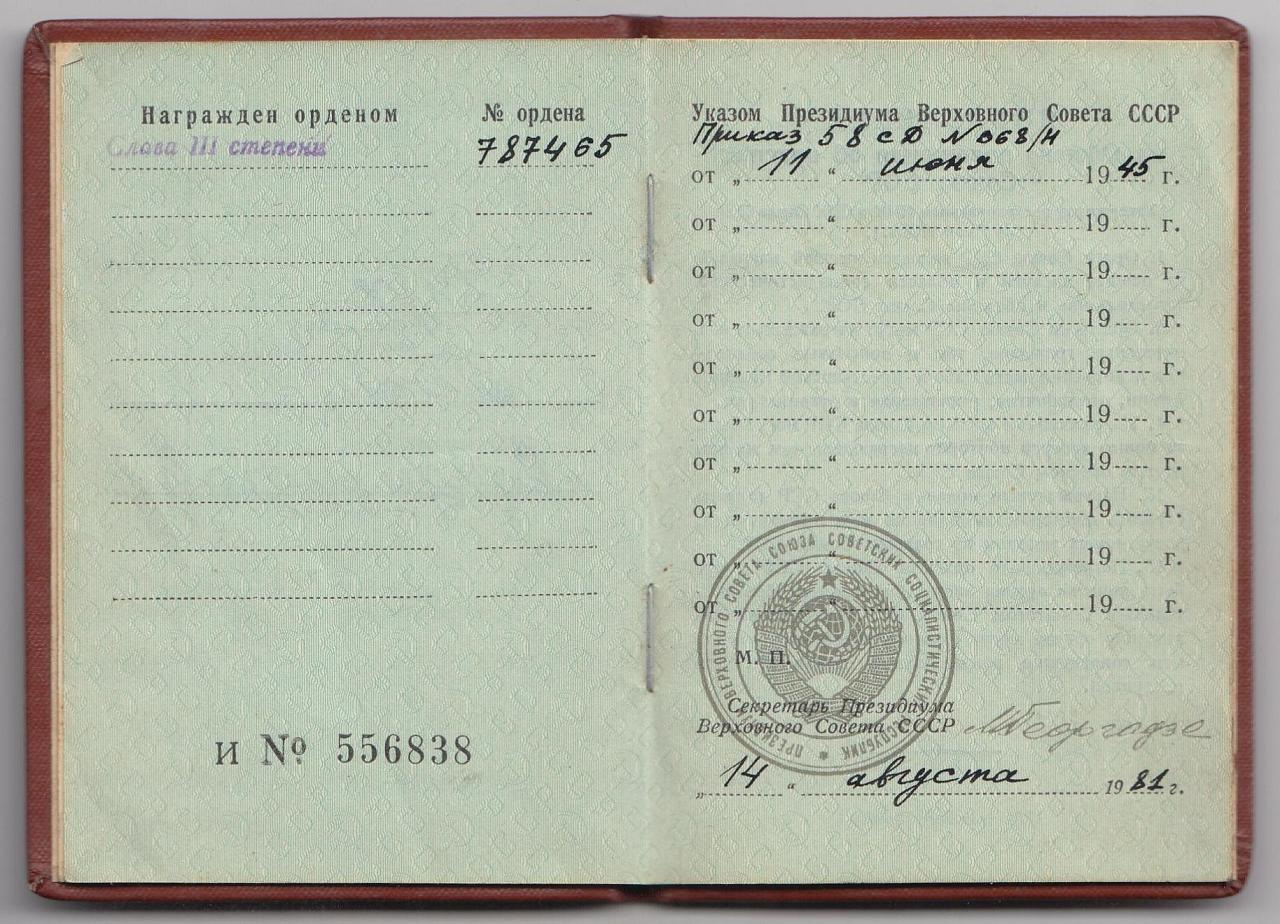 Награжден орденом
Слава III степени
№ ордена
787465
И № 556838
Указом Президиума Верховного Совета СССР
Приказ 58 сД N 068/Н
от „ 11 “ июня 1945 г.
от „ “ 19 г.
от „ “ 19 г.
от „ “ 19 г.
от „ “ 19 г.
от „ “ 19 г.
от „ “ 19 г.
от „ “ 19 г.
от „ “ 19 г.
от „ “ 19 г.
ПРЕЗИДИУМ ВЕРХОВНОГО СОВЕТА СОЮЗА СОВЕТСКИХ СОЦИАЛИСТИЧЕСКИХ РЕСПУБЛИК
М. П.
Секретарь Президиума
Верховного Совета СССР МГеоргадзе
„ 14 “ августа 1981 г.